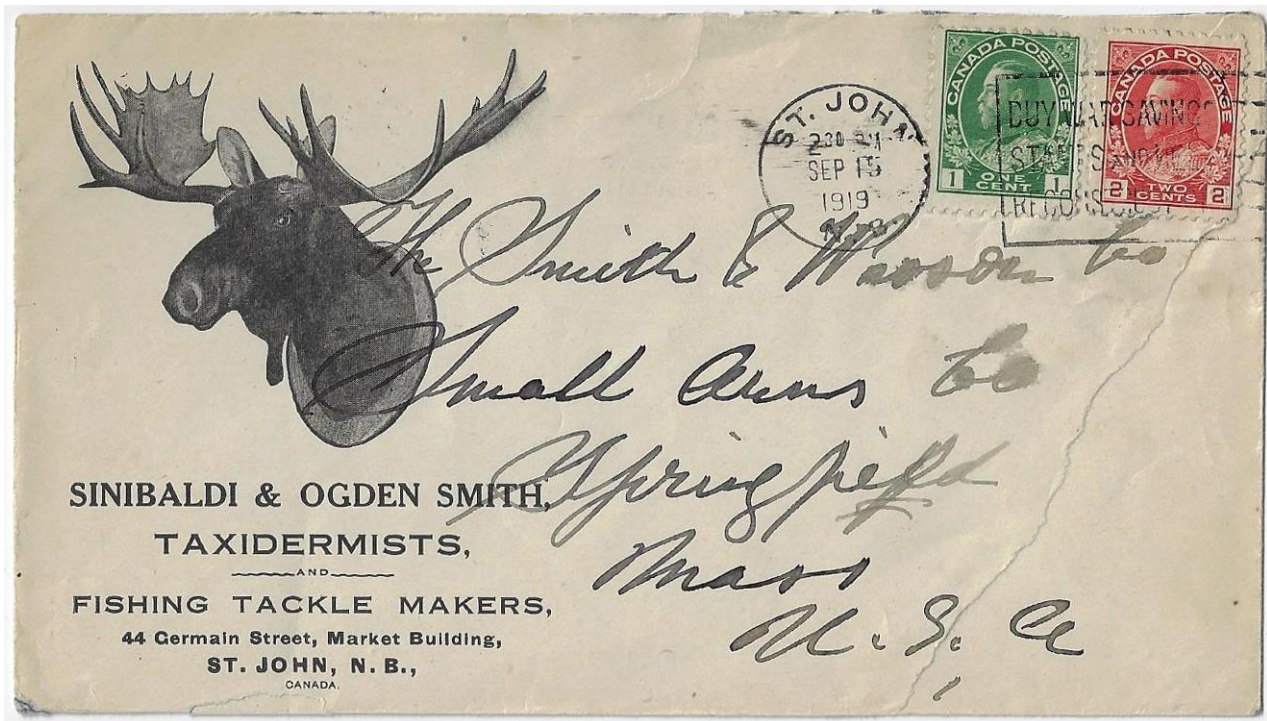 CANADA POSTAGE
1 ONE CENT 1
CANADA POSTAGE
2 TWO CENTS 2
ST. JOHN
2 30 PM
SEP 15
1919
N.B.
BUY WAR SAVINGS
STAMPS AND
The Smith & Wesson Co
Small Arms Co
Springfield
Mass
U. S. A
SINIBALDI & OGDEN SMITH,
TAXIDERMISTS,
AND
FISHING TACKLE MAKERS,
44 Germain Street, Market Building,
ST. JOHN, N. B.,
CANADA.